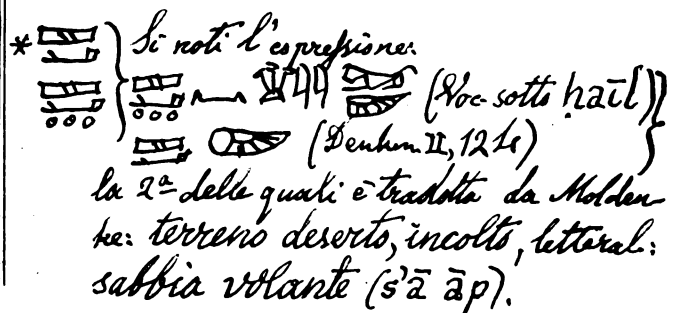 * Si noti l'espressione:
(Voc. sotto ḥaīt)
(Denkm. II, 124)
la 2ª delle quali è tradotta da Molden-
ke: terreno deserto, incolto, letteral:
sabbia volante (s'ā āp).